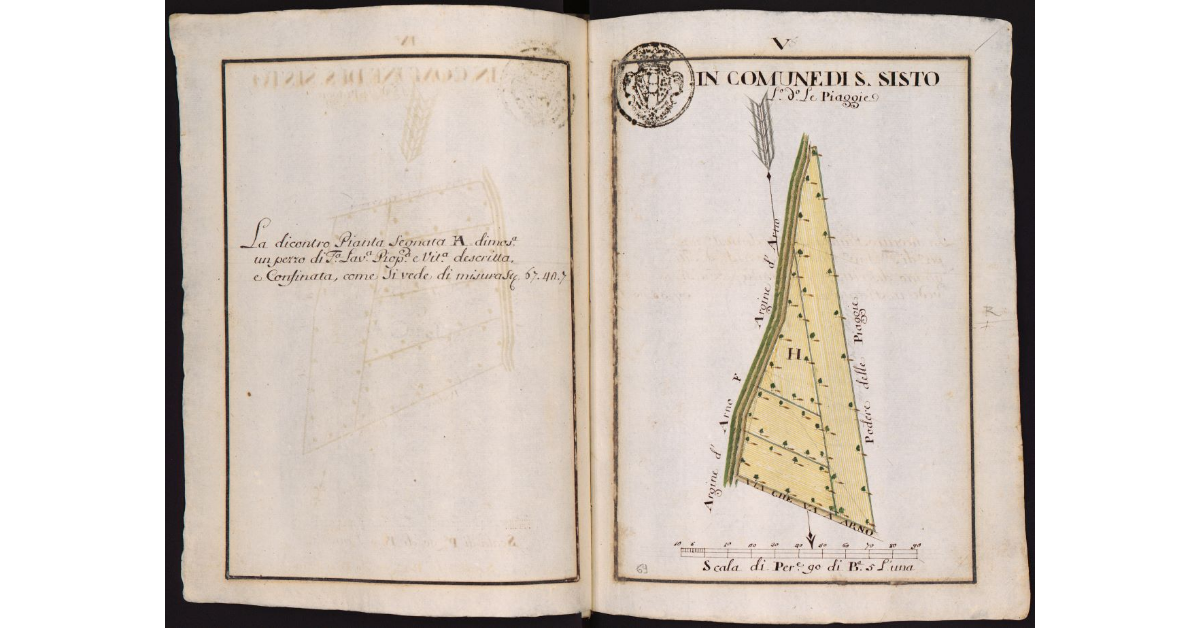 La dicontro Pianta Segnata H dimosᵃ
un pezzo di Tᵒ Lavᵃ Propᵃ e Vitᵃ descritta,
e Confinata, come Si vede di misura Sq. 67.40.7
V
IN COMUNE DI S. SISTO
L.º d.º Le Piaggie
Argine d' Arno
H
Podere delle Piaggie
Argine d' Arno F
VIA CHE VA A ARNO
10 20 30 40 50 60 70 80 90
Scala di Perᵉ 90 di Bᵃ 5 l'una
69